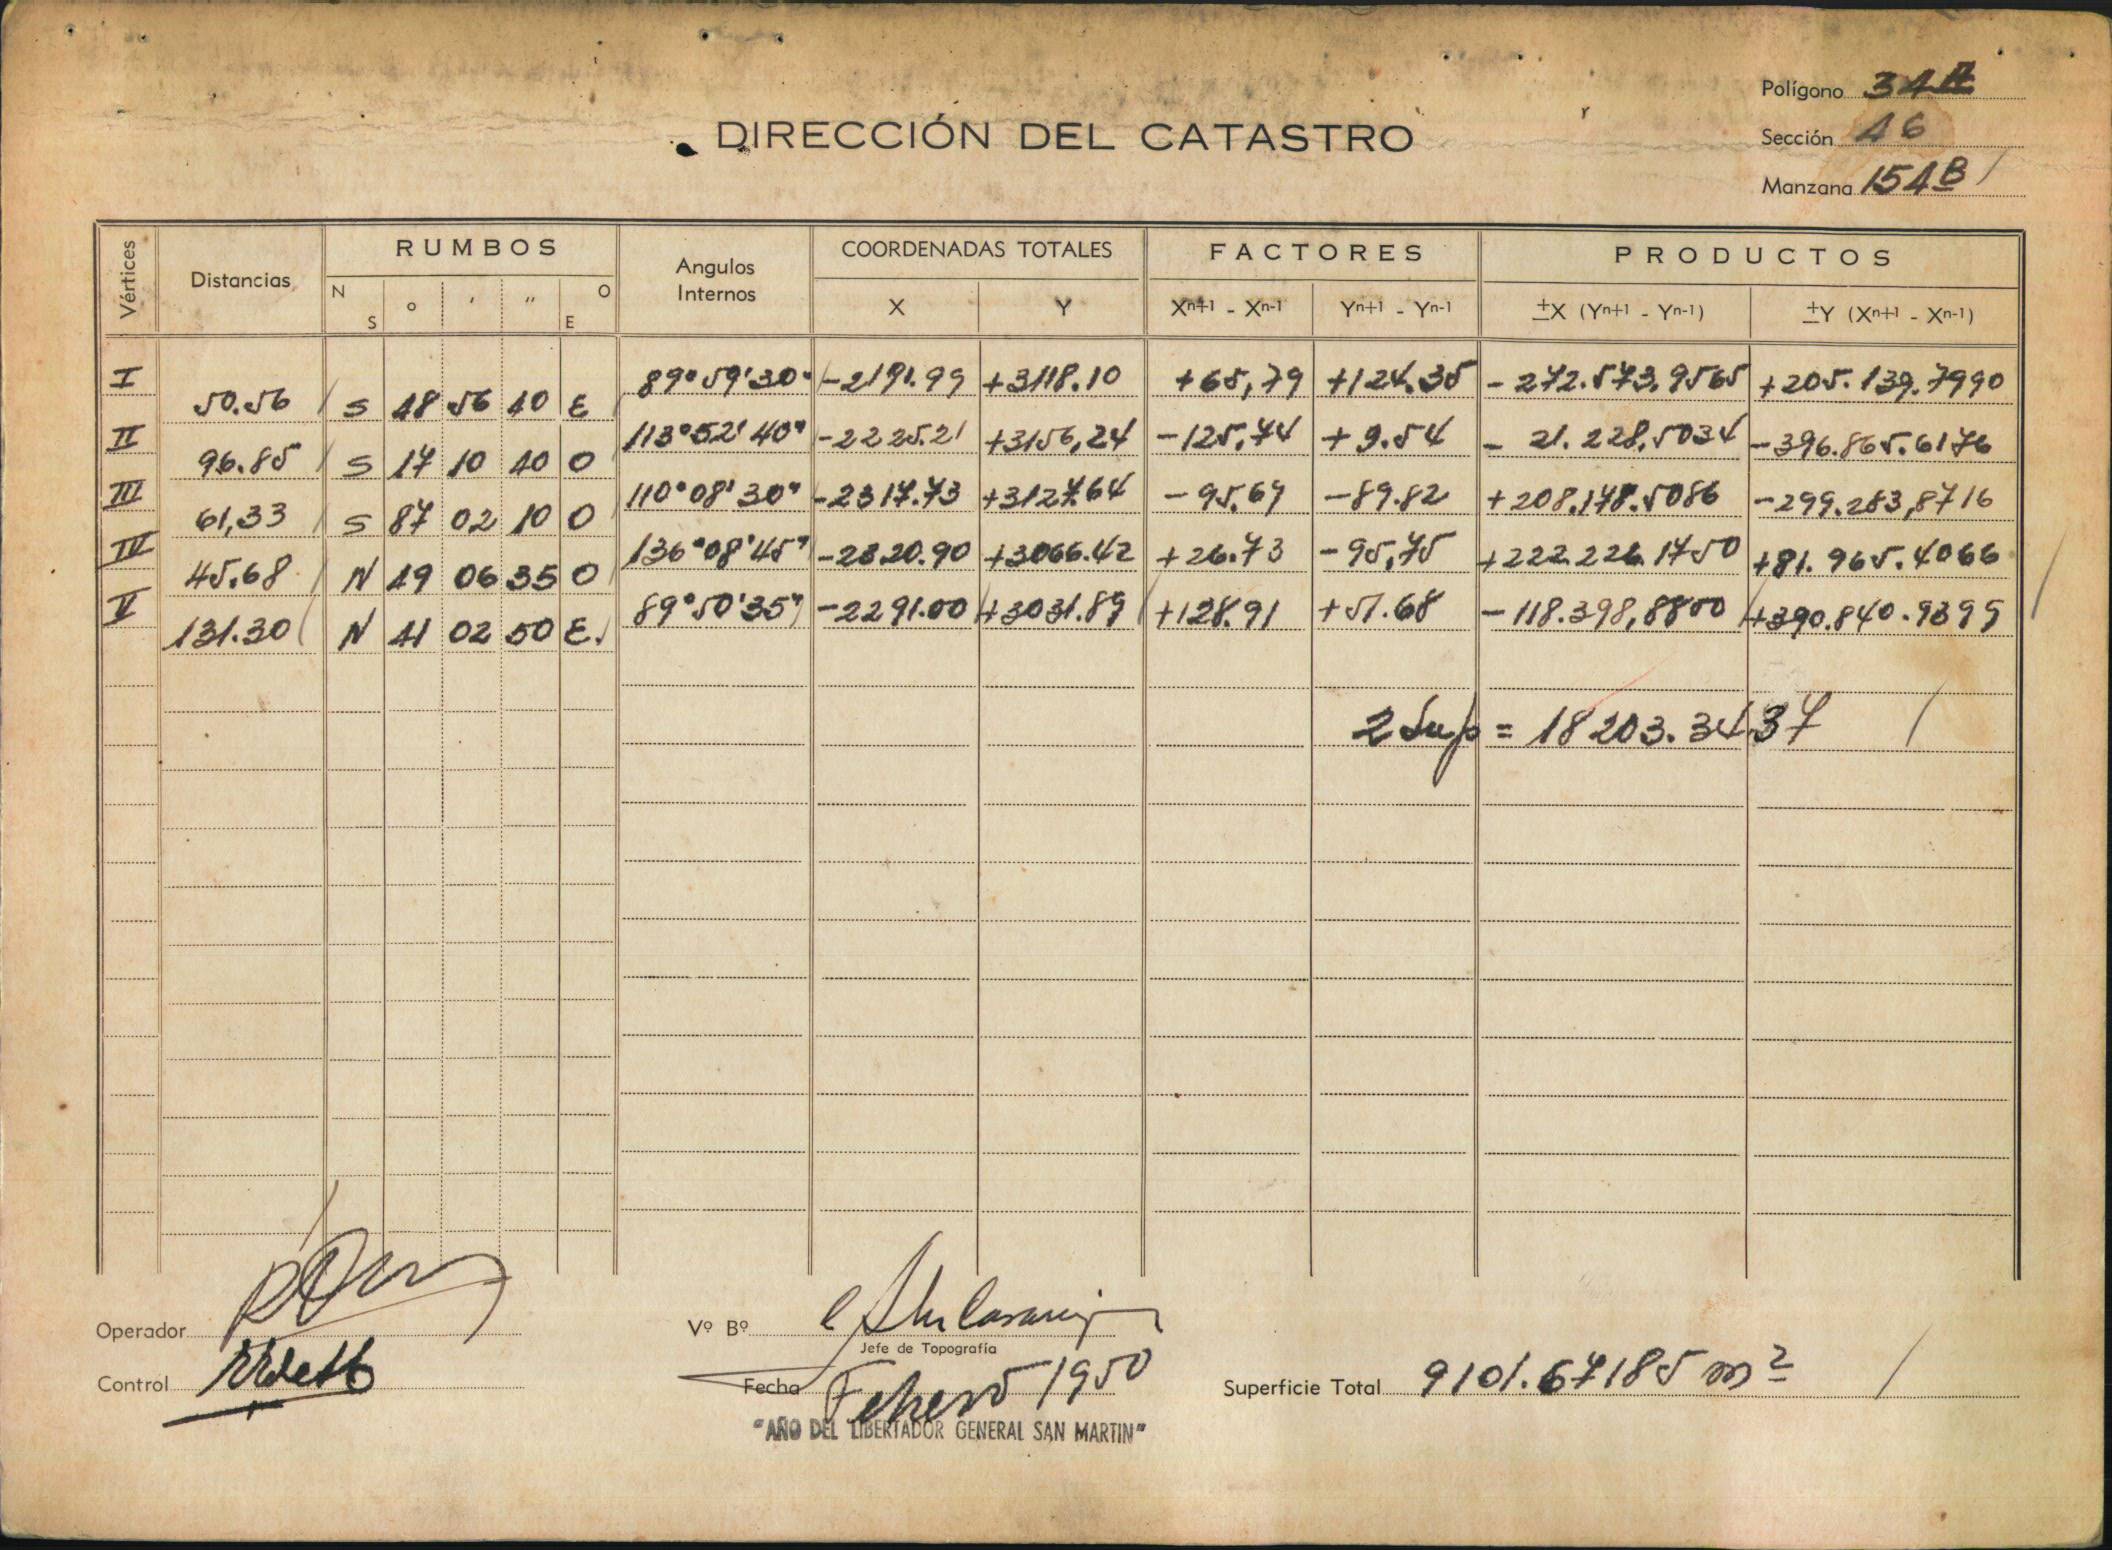 Polígono 34A
DIRECCIÓN DEL CATASTRO
Sección 46
Manzana 154B
Vértices Distancias RUMBOS Angulos Internos COORDENADAS TOTALES FACTORES PRODUCTOS
N S ° ' " O E X Y Xn+1 - Xn-1 Yn+1 - Yn-1 ±X (Yn+1 - Yn-1) ±Y (Xn+1 - Xn-1)
I 89°59'30" -2191.99 +3118.10 +65,79 +124.35 -272.573.9565 +205.139.7990
50.56 S 48 56 40 E
II 113°52'40" -2225.21 +3156,24 -125,74 +9.54 -21.228,5034 -396.865.6176
96.85 S 17 10 40 O
III 110°08'30" -2317.73 +3127.64 -95.69 -89.82 +208.178.5086 -299.283,8716
61,33 S 87 02 10 O
IV 136°08'45" -2320.90 +3066.42 +26.73 -95,75 +222.226.1750 +81.965.4066
45.68 N 49 06 35 O
V 89°50'35" -2291.00 +3031.89 +128.91 +51.68 -118.398,8800 +390.840.9399
131.30 N 41 02 50 E.
2 Sup = 18203.3437
Operador
Vº Bº
Jefe de Topografía
Control
Fecha Febrero 1950
Superficie Total 9101.67185 m²
"AÑO DEL LIBERTADOR GENERAL SAN MARTIN"